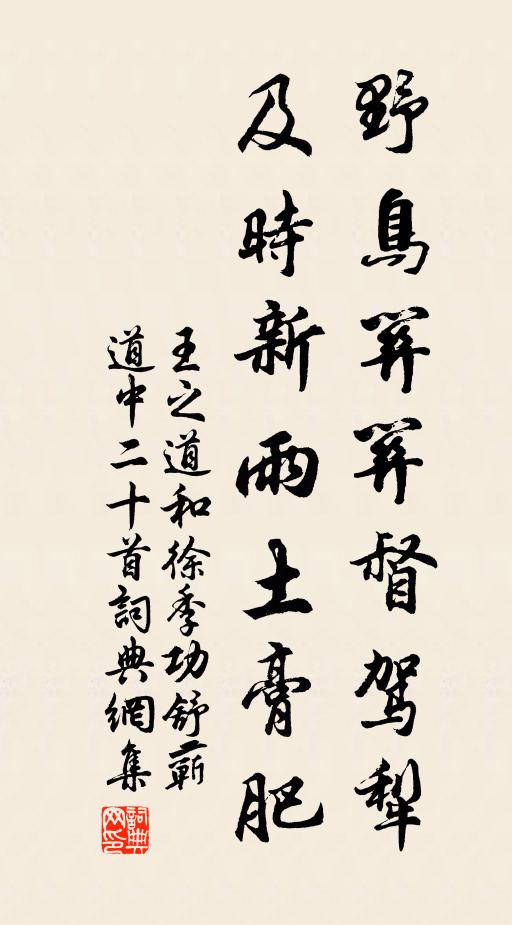 野鳥關關督駕犁
及時新雨土膏肥
王之道和徐季功舒蘄
道中二十首詞典網集
詞典網印